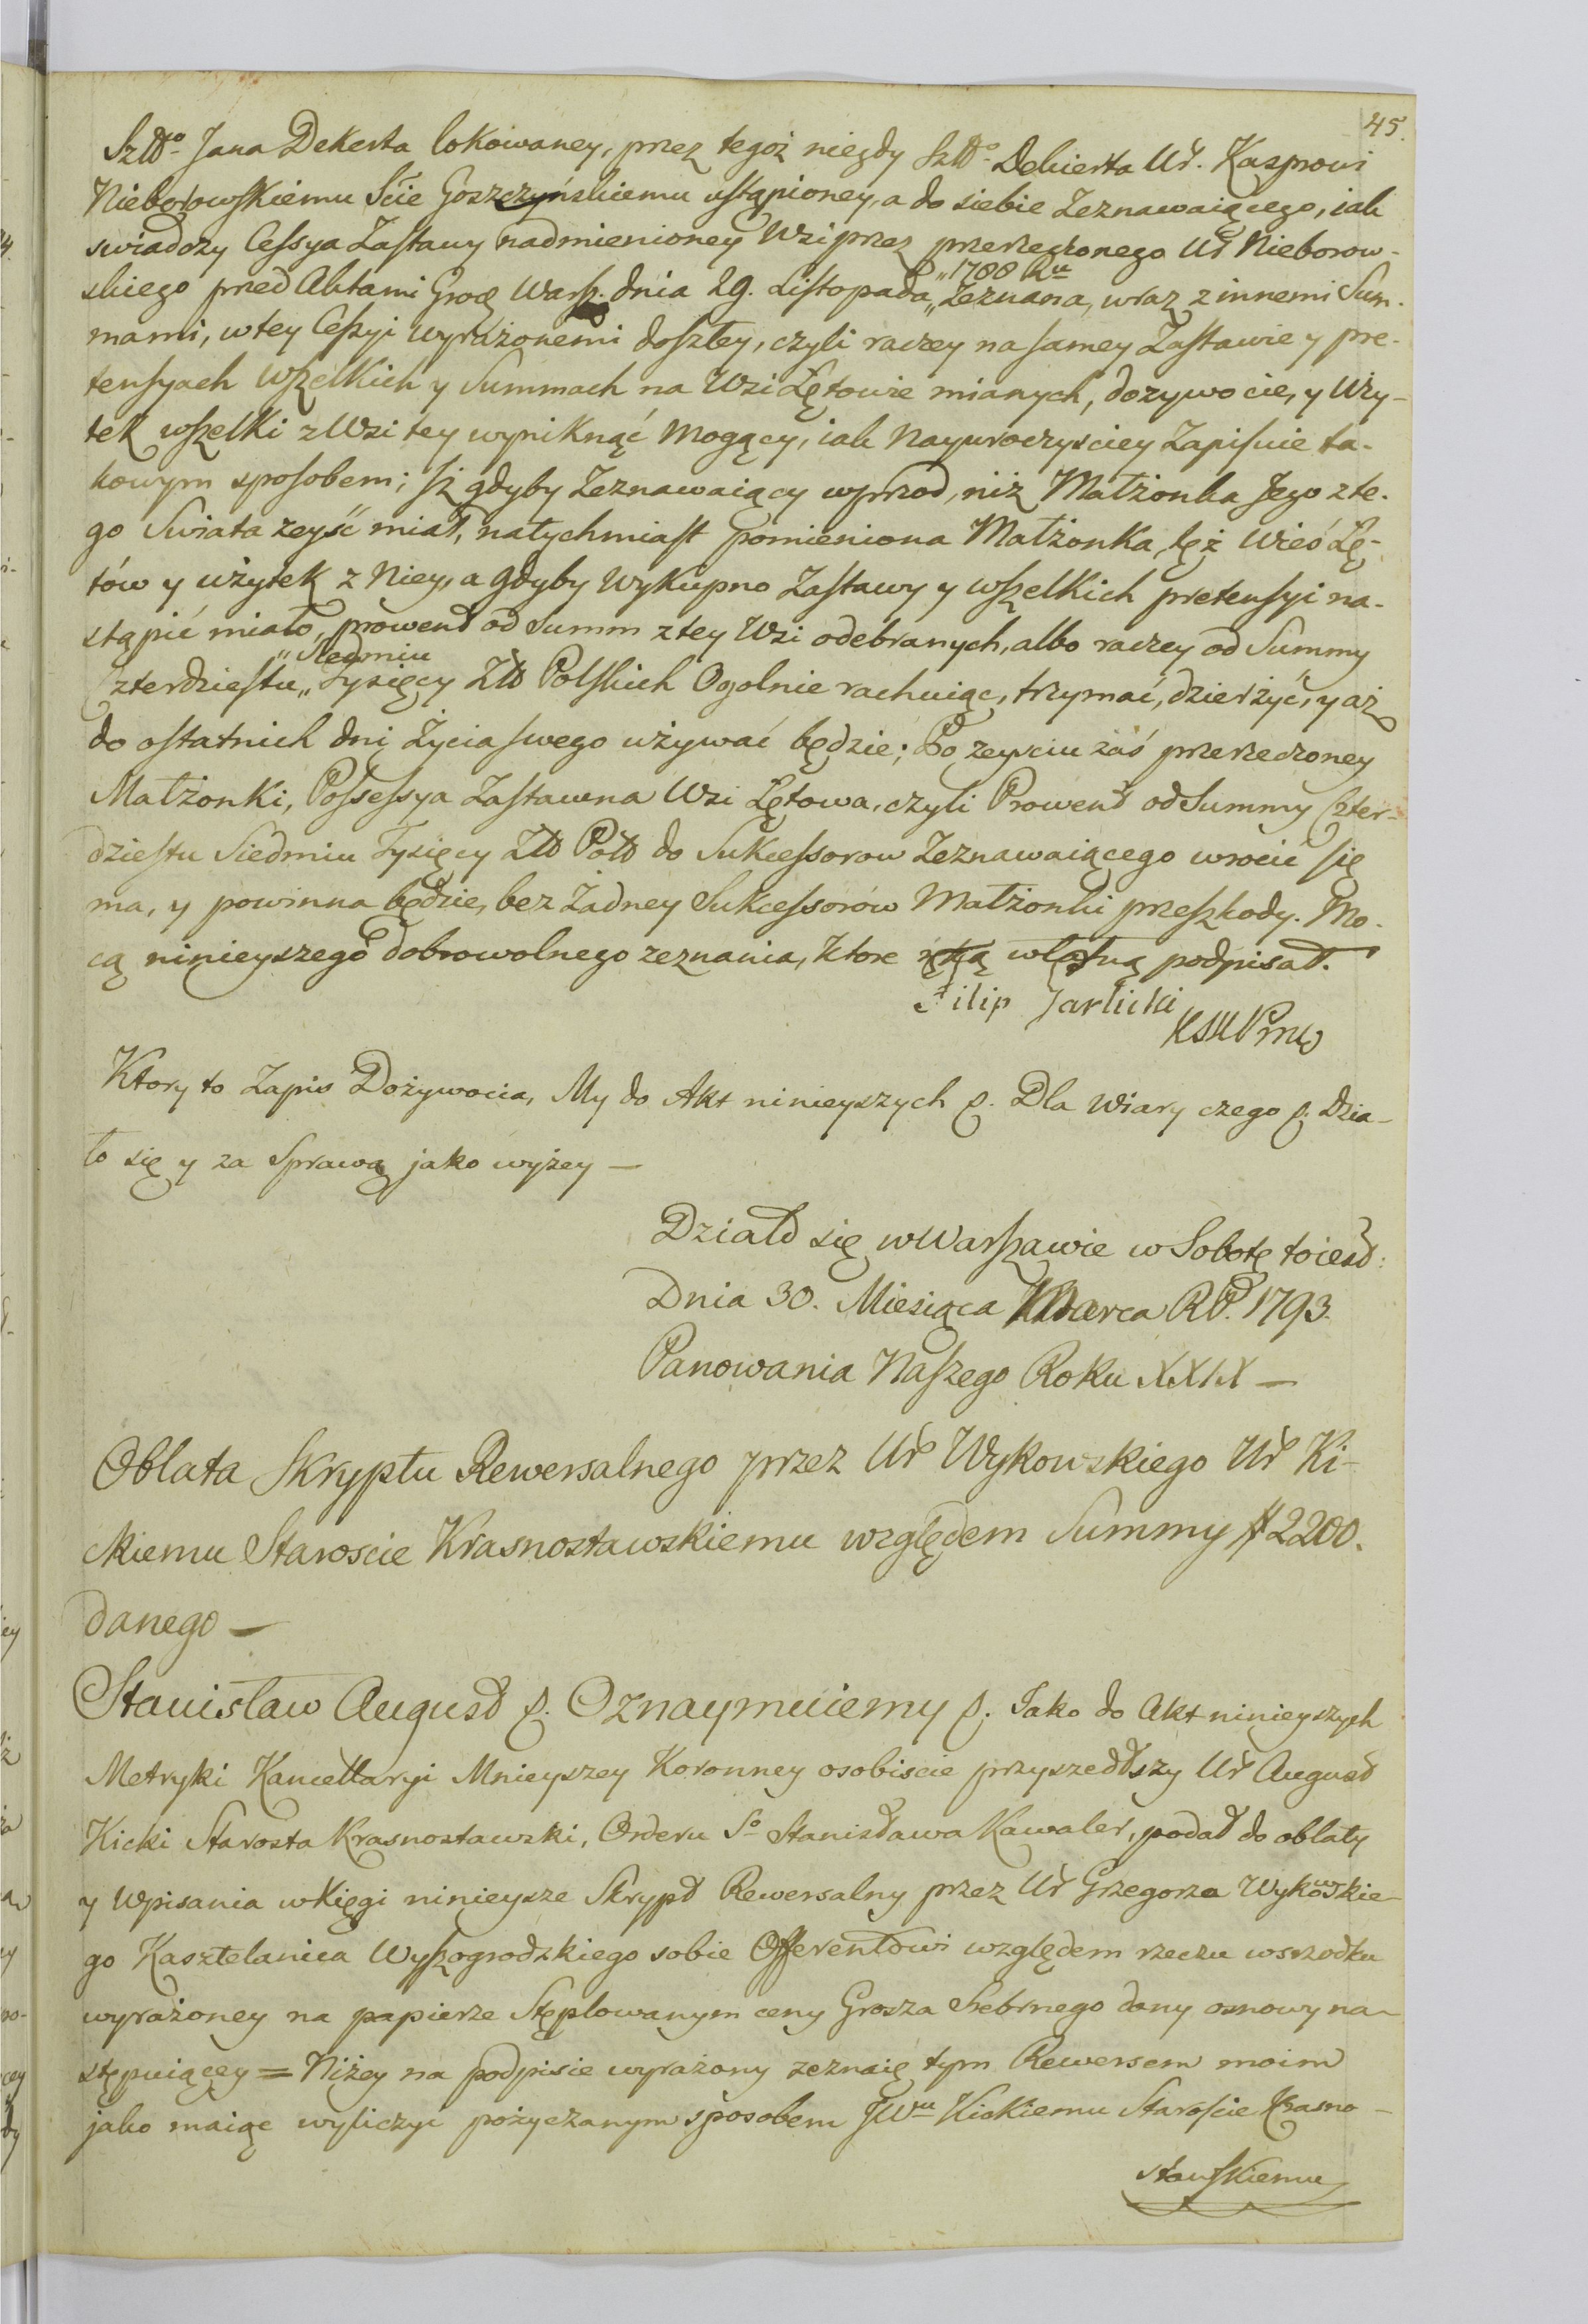 45.
Szltt⁰ Jana Dekerta lokowaney, przez tegoż niegdy Szltt⁰ Dekierta Ur. Kasprowi
Nieborowskiemu Ście Goszczyńskiemu ustąpioney, a do siebie Zeznawaiącego, iak
swiadczy Cessya Zastawy nadmienioney Wzi przez przerzeczonego Ur Nieborow-
skiego przed Aktami Grod Warsz. dnia 29. Listopada „1788 Ru „Zeznana, wraz z innemi Sum-
mami, w tey Cessyi wyrażonemi doszłey, czyli raczey na samey Zastawie y pre-
tensyach wszelkich y Summach na Wzi Lętowie mianych, dozywocie, y Uży-
tek wszelki z Wzi tey wyniknąć mogący, iak Nayuroczysciey Zapisuie ta-
kowym sposobem; iż gdyby Zeznawaiący wprzod, niż Małżonka Jego z te-
go Swiata zeyść miał, natychmiast pomieniona Małżonka, tęż Wieś Lę-
tów y użytek z Niey, a gdyby Wykupno Zastawy y wszelkich pretensyi na-
stąpić miało, prowent od Summ z tey Wzi odebranych, albo raczey od Summy
Czterdziestu „Siedmiu „Tysięcy Złł Polskich Ogolnie rachuiąc, trzymać, dzierżyć, y aż
do ostatnich dni Życia swego używać będzie; Po zeysciu zaś przerzeczoney
Małżonki, Possessya Zastawna Wzi Lętowa, czyli Prowent od Summy Czter-
dziestu Siedmiu Tysięcy Złł Pol do Sukcessorow Zeznawaiącego wrocić się
ma, y powinna będzie, bez Żadney Sukcessorów Małżonki przeszkody. Mo-
cą ninieyszego dobrowolnego zeznania, ktore ręką własną podpisał.
Filip Jarlicki
Ktory to Zapis Dożywocia, My do Akt ninieyszych p. Dla Wiary czego p. Dzia-
ło się y za Sprawą jako wyżey —
Działo się w Warszawie w Sobotę toiest:
Dnia 30. Miesiąca Marca RP. 1793.
Panowania Naszego Roku XXIX —
Oblata Skryptu Rewersalnego przez Ur Wykowskiego Ur Ki-
ckiemu Staroscie Krasnostawskiemu względem Summy # 2200.
danego —
Stanisław August p. Oznaymuiemy p. Iako do Akt ninieyszych
Metryki Kancellaryi Mnieyszey Koronney osobiscie przyszedłszy Ur August
Kicki Starosta Krasnostawski, Orderu S⁰ Stanisława Kawaler, podał do oblaty
y Wpisania w Xięgi ninieysze Skrypt Rewersalny przez Ur Grzegorza Wykowskie-
go Kasztelanica Wyszogrodzkiego sobie Offerentowi względem rzeczu wsrzodku
wyrażoney na papierze Stęplowanym ceny Grosza Srebrnego dany osnowy na-
stępuiącey = Niżey na podpisie wyrażony zeznaię tym Rewersem moim
jako maiąc wyliczyc pożyczanym sposobem JWu Kickiemu Staroscie Krasno-
stawskiemu